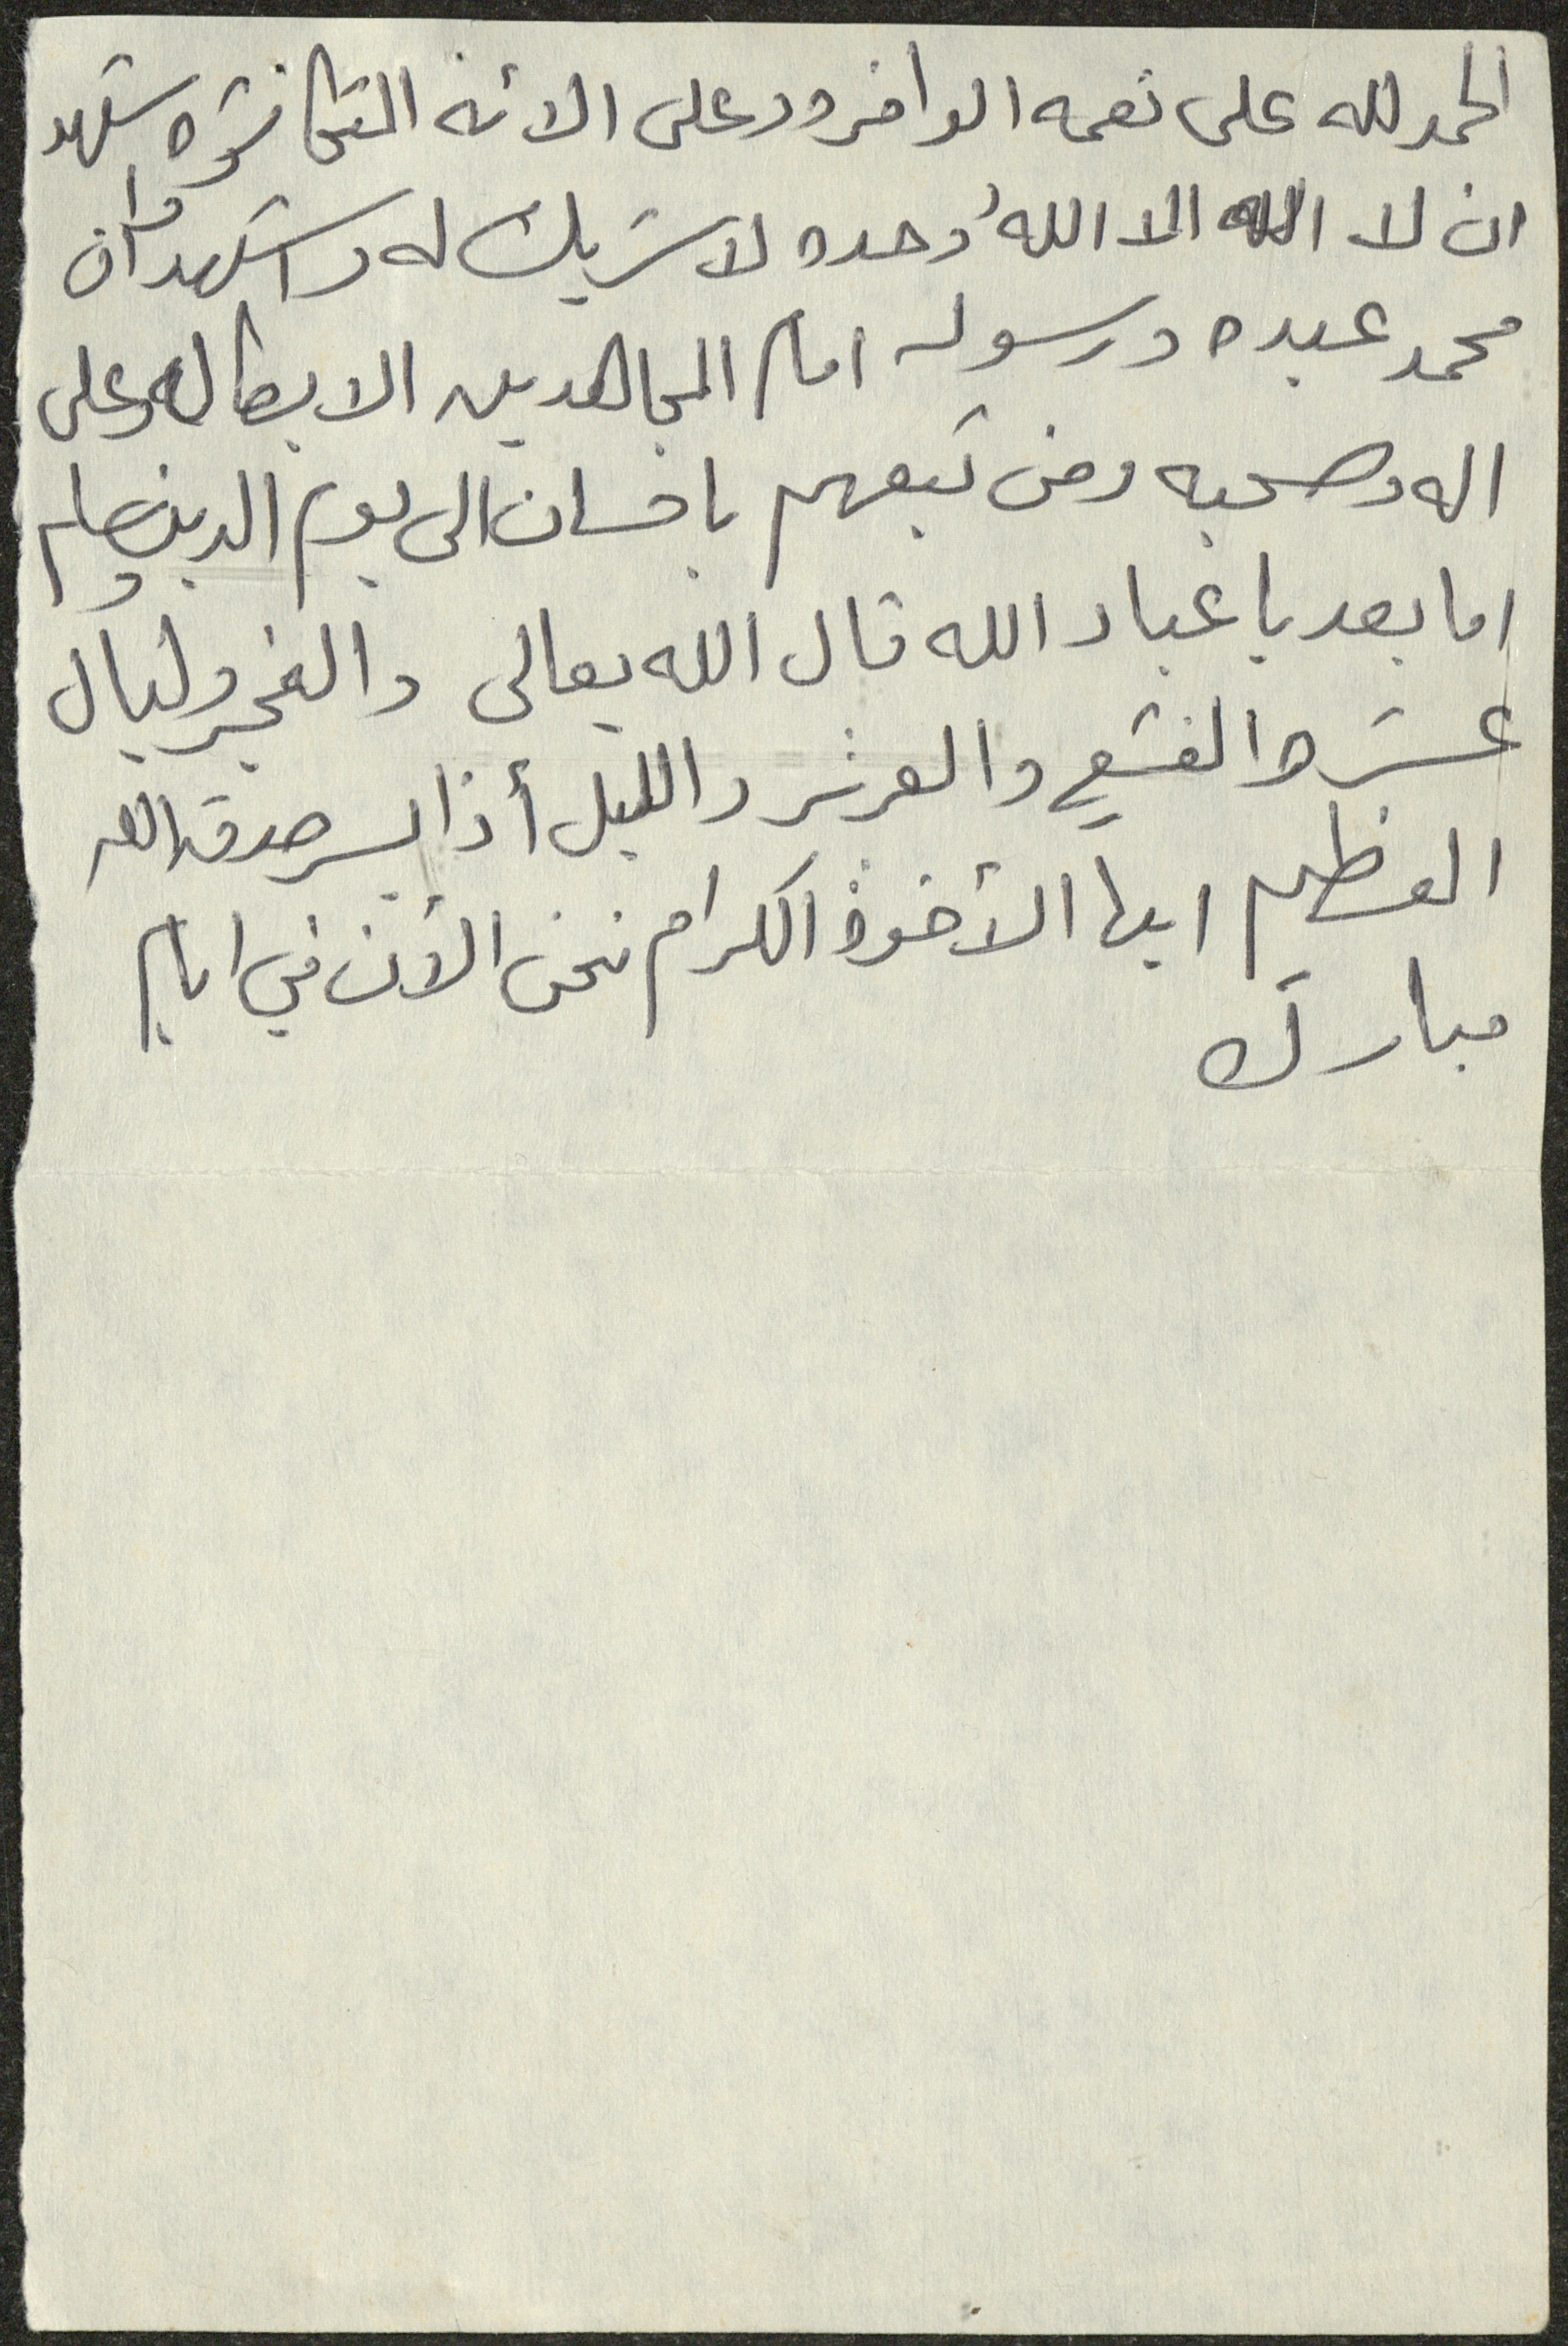 الحمد لله على نعمه الوافره وعلى الائه المتكاثره واشهد
ان لا اله الا الله وحده لا شريك له واشهد ان
محمد عبده ورسوله امام المجاهدين الابطال وعلى
اله وصحبه ومن تبعهم باحسان الى يوم الدين وسلم
اما بعد يا عباد الله قال الله تعالى والفجر وليال
عشر والشفع والوتر والليل أذا يسر صدق الله
العظيم ايها الأخوة الكرام نحن الأن في ايام
مباركه